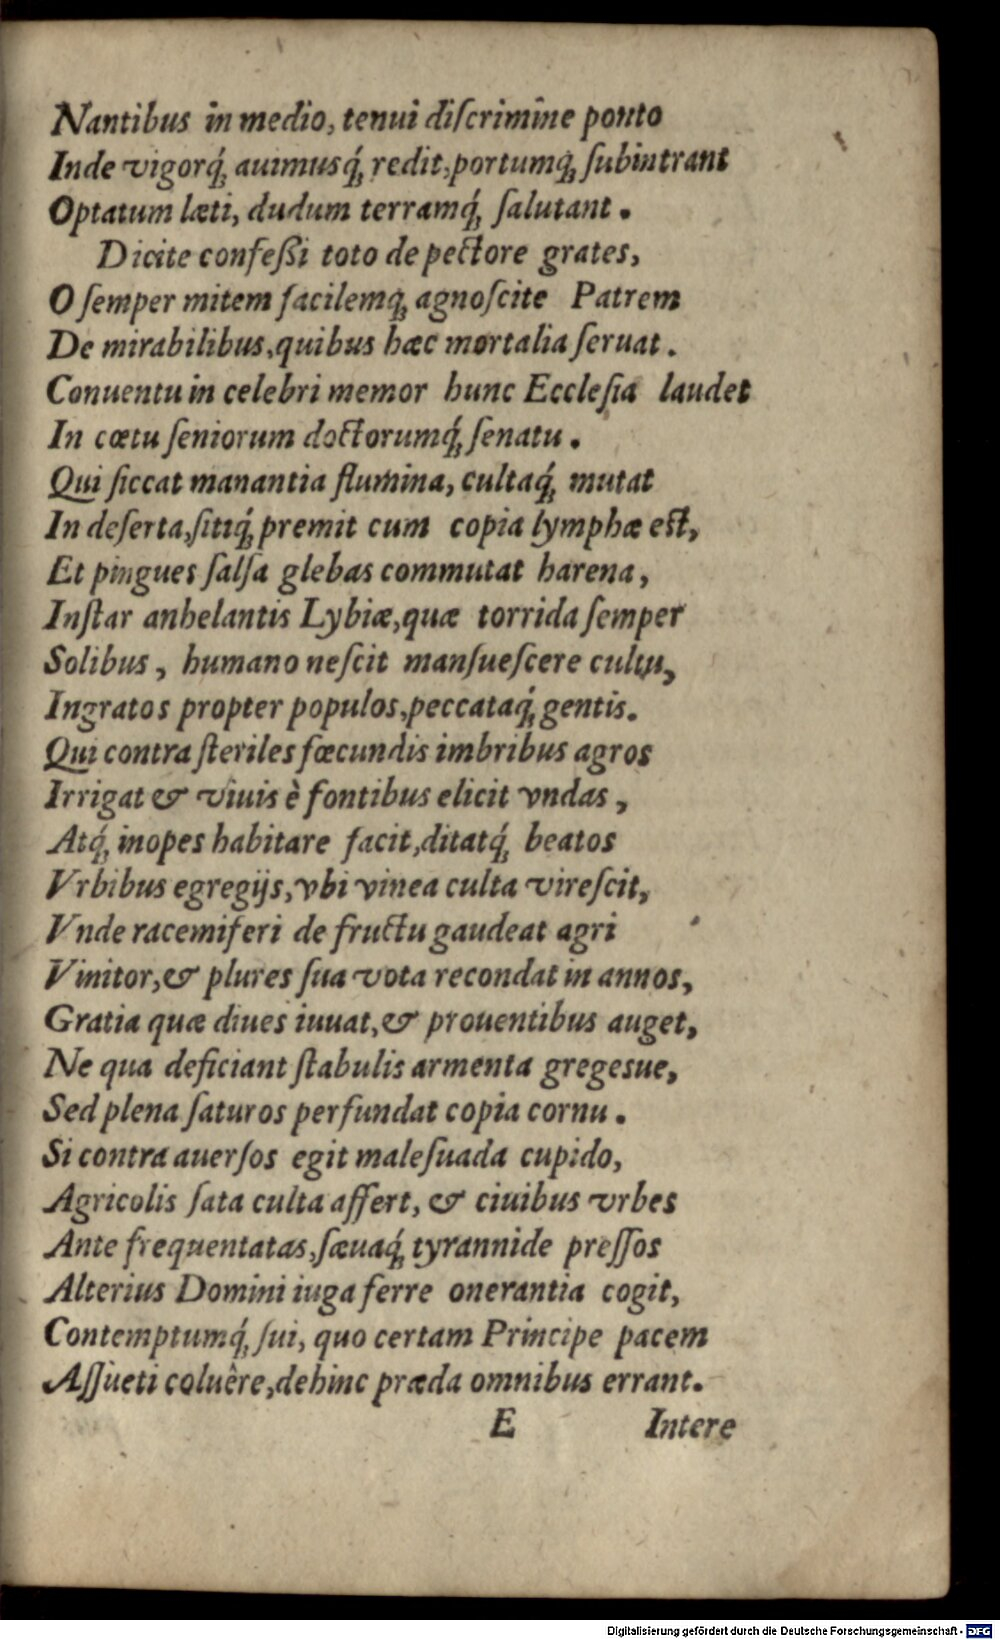 Nantibus in medio, tenui diſcrimine ponto
Inde vigorq́; auimusq́; redit, portumq́; ſubintrant
Optatum læti, dudum terramq́; ſalutant.
Dicite confeßi toto de pectore grates,
O ſemper mitem facilemq; agnoſcite Patrem
De mirabilibus, quibus hæc mortalia ſeruat.
Conuentu in celebri memor hunc Eccleſia laudet
In cœtu ſeniorum doctorumq́; ſenatu.
Qui ſiccat manantia flumina, cultaq́; mutat
In deſerta, ſitiq́; premit cum copia lymphæ eſt,
Et pingues ſalſa glebas commutat harena,
Inſtar anhelantis Lybiæ, quæ torrida ſemper
Solibus, humano neſcit manſueſcere cultu,
Ingratos propter populos, peccataq́; gentis.
Qui contra ſteriles fœcundis imbribus agros
Irrigat & viuis è fontibus elicit vndas,
Atq́; inopes habitare facit, ditatq́; beatos
Vrbibus egregijs, vbi vinea culta vireſcit,
Vnde racemiferi de fructu gaudeat agri
Vinitor, & plures ſua vota recondat in annos,
Gratia quæ diues iuuat, & prouentibus auget,
Ne qua deficiant ſtabulis armenta gregesue,
Sed plena ſaturos perfundat copia cornu.
Si contra auerſos egit maleſuada cupido,
Agricolis ſata culta affert, & ciuibus vrbes
Ante frequentatas, ſæuaq́; tyrannide preſſos
Alterius Domini iuga ferre onerantia cogit,
Contemptumq́; ſui, quo certam Principe pacem
Aſſueti coluêre, dehinc præda omnibus errant.
E Intere
Digitalisierung gefördert durch die Deutsche Forschungsgemeinschaft - DFG